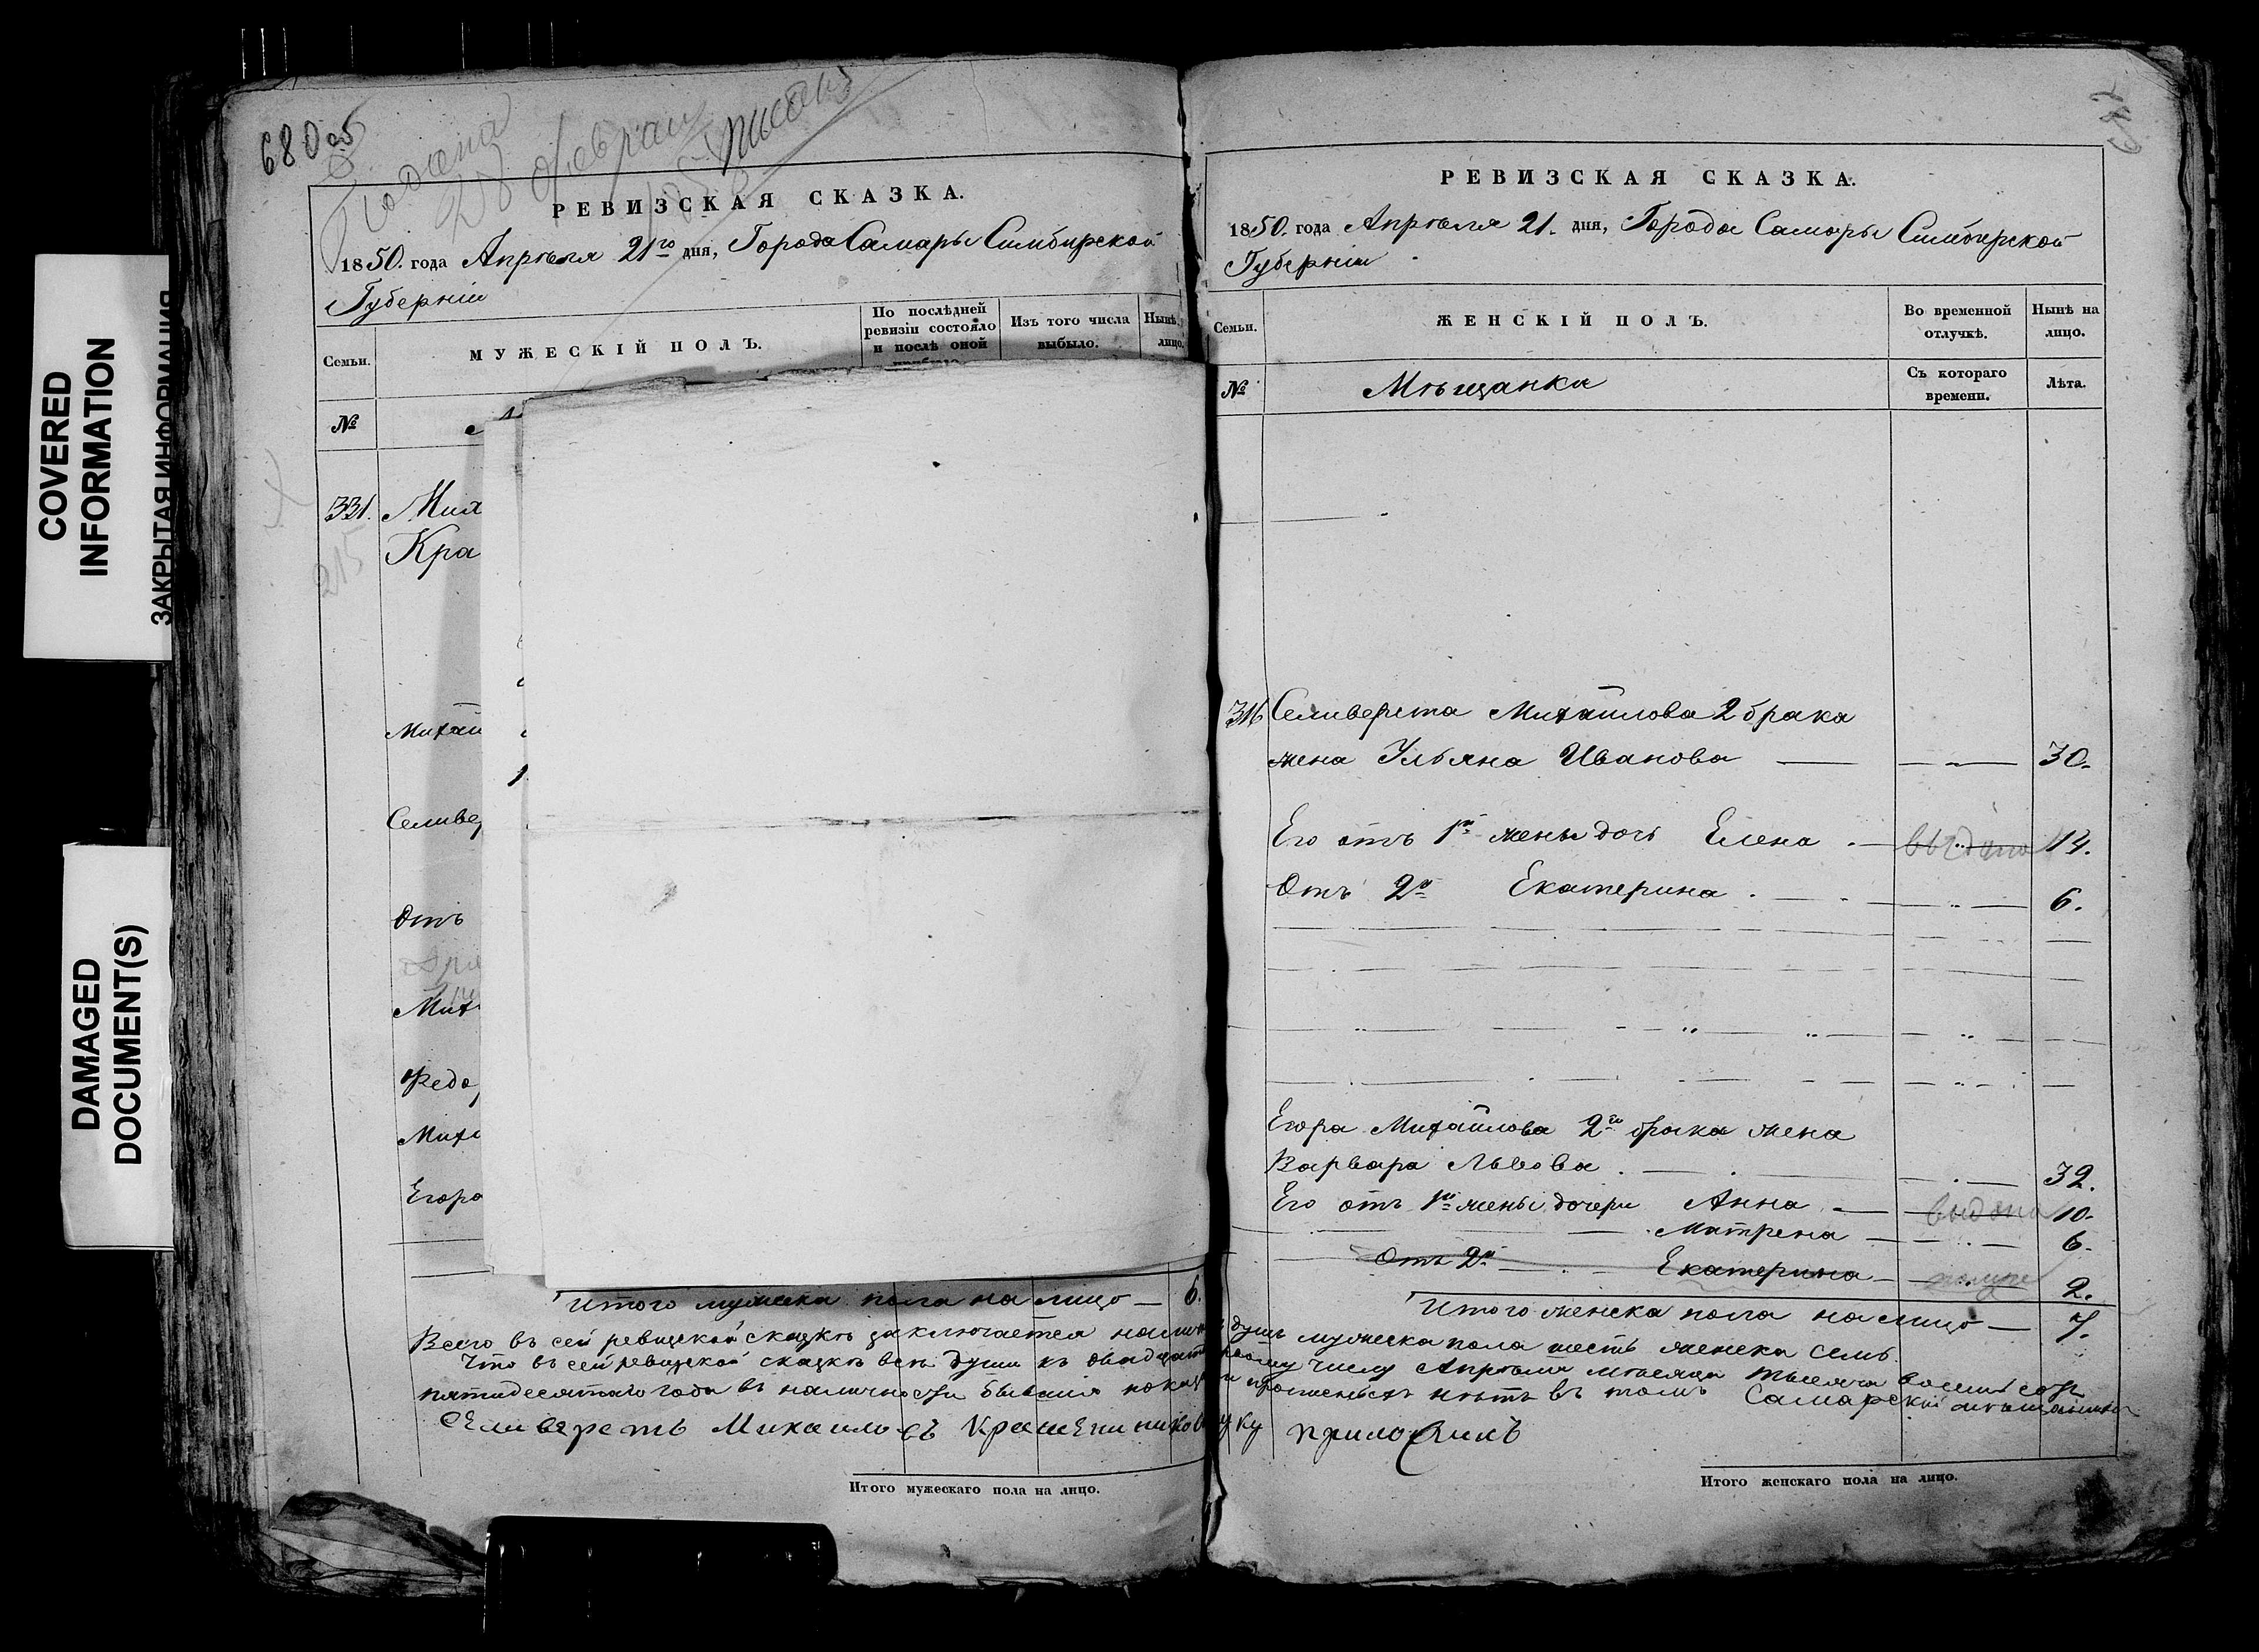 COVERED
INFORMATION
ЗАКРЫТАЯ ИНФОРМАЦИЯ
DAMAGED
DOCUMENT(S)
680 об
Подана
28 февраля
РЕВИЗСКАЯ СКАЗКА.
1850. года Апрѣля 21го дня, Города Самары Симбирской
Губерніи
Семьи.
МУЖЕСКІЙ ПОЛЪ.
По послѣдней
ревизіи состояло
и послѣ оной
Изъ того числа
выбыло.
Нынѣ
лицо.
№
331. Мих
Кра
215
Михаи
Селивер
Отъ
Мих
Федо
Миха
Егоро
Итого мужеска пола на лицо — 6.
РЕВИЗСКАЯ СКАЗКА.
1850. года Апрѣля 21. дня, Города Самары Симбирской
Губерніи
Семьи.
ЖЕНСКІЙ ПОЛЪ.
Во временной
отлучкѣ.
Нынѣ на
лицо.
№
Мѣщанка
Съ котораго
времени.
Лѣта.
316 Селиверста Михайлова 2 брака
жена Ульяна Иванова — 30.
Его отъ 1й жены дочь Елена выдана 14.
Отъ 2й Екатерина 6.
Егора Михайлова 2го брака жена
Варвара Львова 32.
Его отъ 1й жены дочери Анна выдана 10.
Матрена 6.
Отъ 2й Екатерина 2.
Итого женска пола на лицо — 7.
Всего въ сей ревизской сказкѣ заключается налич душъ мужеска пола шесть женска семь.
Что въ сей ревизской сказкѣ всѣ души къ двадцать числу Апрѣля мѣсяца тысяча восемь сотъ
пятидесятаго года въ наличности бывшія показ и прописныхъ нѣтъ въ томъ Самарскій мѣщанинъ
Селиверстъ Михаиловъ Крашенинников уку приложилъ
Итого мужескаго пола на лицо.
Итого женскаго пола на лицо.